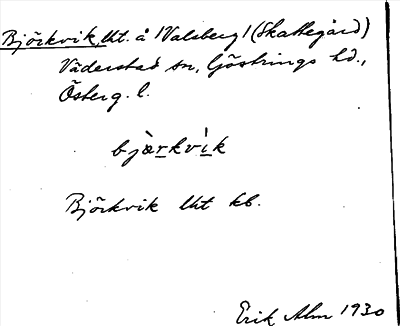 Björkvik, lht. å /Valsberg/ (Skattegård)
Väderstad sn, Göstrings hd.,
Österg. l.
bjàrkvìk
Björkvik lht kb.
Erik Alm 1930